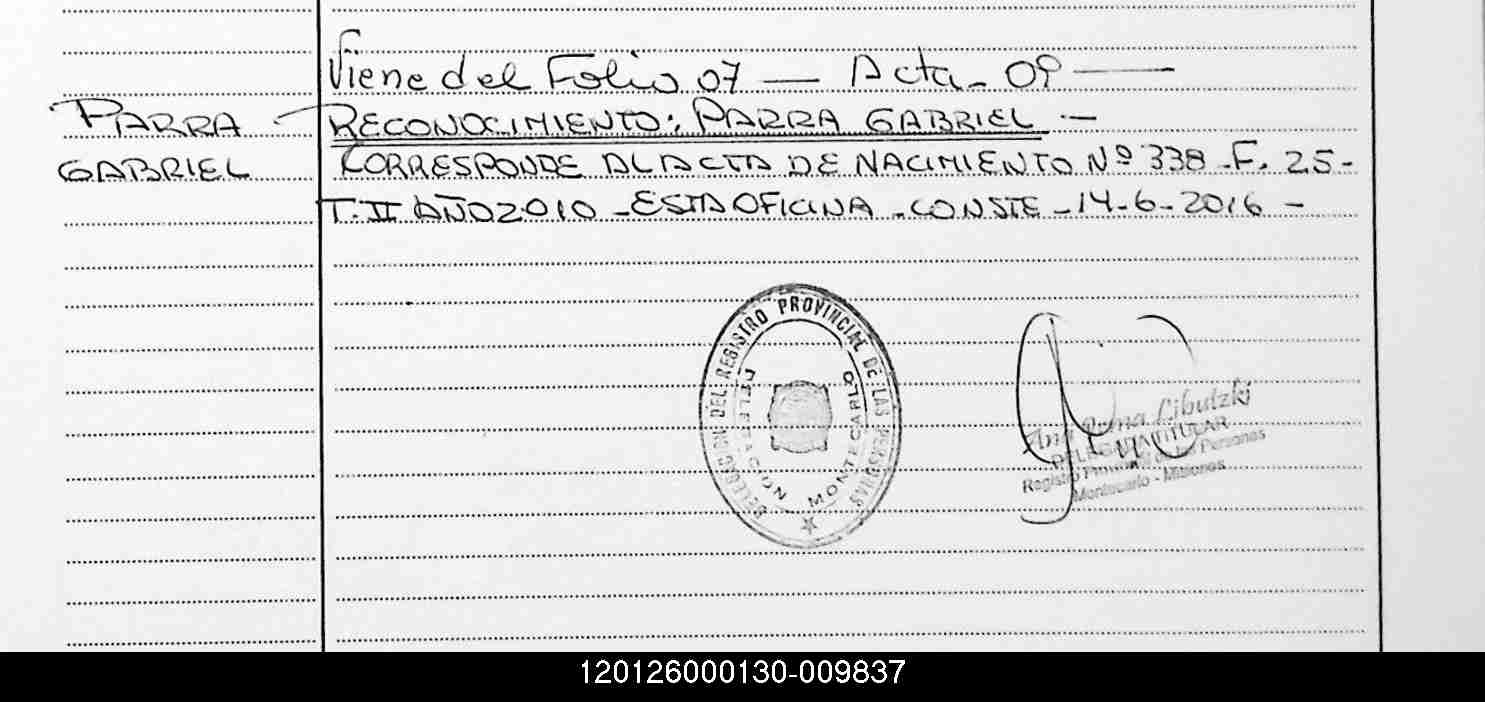 Viene del Folio 07 — Acta - 09 —
PARRA GABRIEL
RECONOCIMIENTO: PARRA GABRIEL -
CORRESPONDE AL ACTA DE NACIMIENTO Nº 338 - F. 25 -
T. II AÑO 2010 - ESTA OFICINA - CONSTE - 14-6-2016 -
DELEGACION DEL REGISTRO PROVINCIAL DE LAS PERSONAS
DELEGACION MONTECARLO
Ana Libutzki
DELEGADA TITULAR
Registro Provincial de las Personas
Montecarlo - Misiones
120126000130-009837